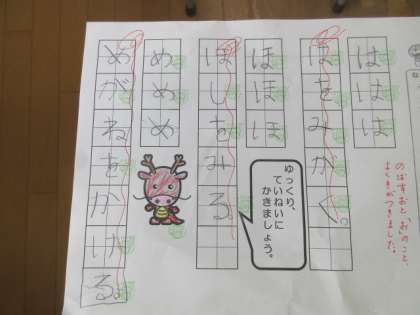 のばすおと、「お」のこと、
よくきがつきました。
ははは
はをみがく。
ほほほ
ほしをみる。
ゆっくり、
ていねいに
かきましょう。
めめめ
めがねをかける。